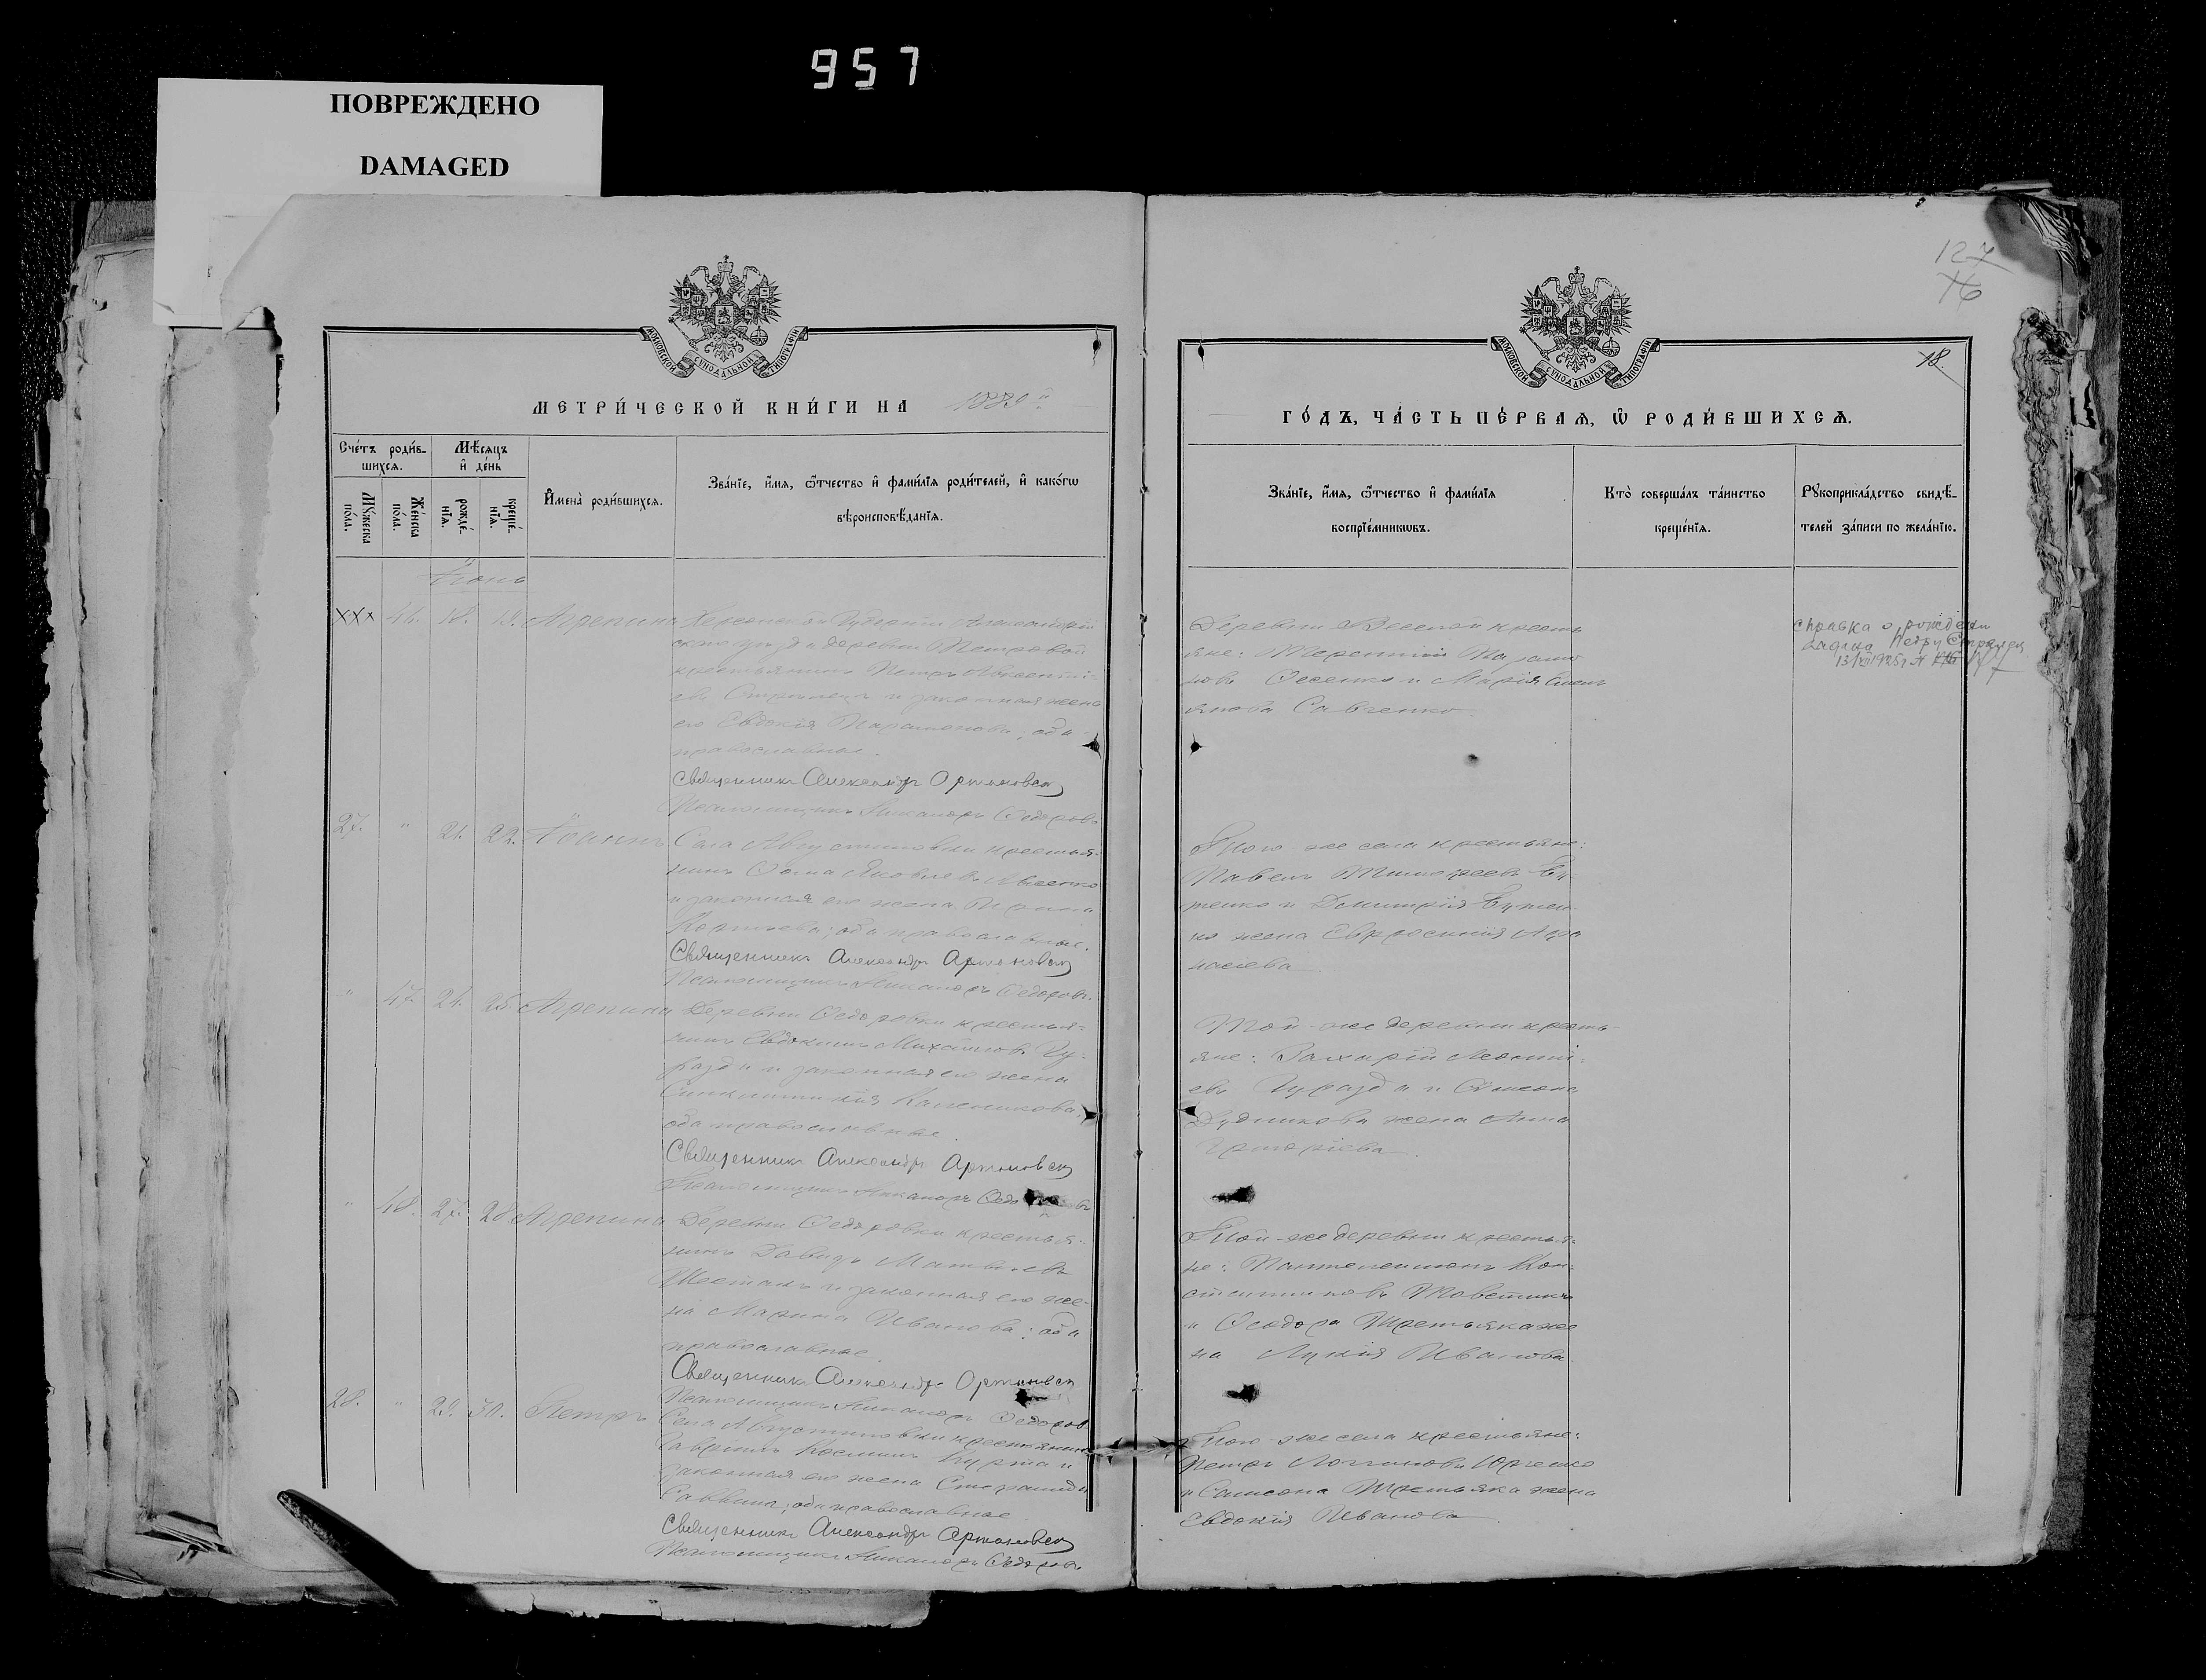 957
ПОВРЕЖДЕНО
DAMAGED
127
16
МОСКОВСКОЙ СѴНОДАЛЬНОЙ ТИПОГРАФІИ
МОСКОВСКОЙ СѴНОДАЛЬНОЙ ТИПОГРАФІИ
18.
МЕТРИ́ЧЕСКОЙ КНИ́ГИ НА 1889й
ГО́ДЪ, ЧА́СТЬ ПЕ́РВАѦ, Ѡ РОДИ́ВШИХСѦ.
Сче́тъ роди́в-
шихсѧ.
Мѣ́сѧцъ
и҆ де́нь
Мꙋ́жеска
по́ла.
Же́нска
по́ла.
рожде́-
нїѧ.
креще́-
нїѧ.
И҆мена̀ роди́вшихсѧ.
Зва́нїе, и҆́мѧ, ѻ҆́тчество и҆ фами́лїѧ роди́телей, и҆ како́гѡ
вѣроисповѣ́данїѧ.
Зва́нїе, и҆́мѧ, ѻ҆́тчество и҆ фами́лїѧ
воспрїе́мникѡвъ.
Кто̀ соверша́лъ та́инство
креще́нїѧ.
Рꙋкоприкла́дство свидѣ́-
телей за́писи по жела́нїю.
Іюнь
ххх 46. 18. 19. Агрепина
Херсонской Губерніи Александрій
скаго уѣзда деревни Петровой
крестьянинъ Петръ Авксентіі-
евъ Стрилецъ и законная жена
его Евдокія Парамонова; оба
православные.
Священникъ Александръ Артановск
Псаломщикъ Никаноръ Ѳедоровъ
Деревни Веселой кресть
яне: Терентій
Осенко и Марія Емель
янова Савченко.
справка о рождении
Петру
13/VII 1925 г. №
27. " 21. 22. Іоаннъ
Села Августиновки крестья-
нинъ Ѳома Яковлевъ
и законная его жена
оба православные.
Священникъ Александръ Артановск
Псаломщикъ Никаноръ Ѳедоровъ.
Того-же села крестьяне:
Павелъ Тимоѳеевъ Бу-
тенко и Димитрія Бутен-
ко жена Евфросинія Аѳа
насіева
" 47. 24. 25. Агрепина
Деревни Ѳедоровки крестья-
нинъ Евдокимъ Михайловъ Гу-
разда и законная его жена
Синклитикія
оба православные.
Священникъ Александръ Артановск
Псаломщикъ Никаноръ
Той-же деревни кресть-
яне: Захарій Леонті-
евъ Гуразда и Симеона
Дудникова жена Анна
Григоріева.
" 48. 27. 28 Агрепина
Деревни Ѳедоровки крестья-
нинъ Давидъ Матвѣевъ
Шестакъ и законная его же-
на Марина Иванова; оба
православные.
Священникъ Александръ Артановск
Псаломщикъ Никаноръ Ѳедоров
Той-же деревни крестья-
не: Пантелеимонъ Кон-
стантиновъ Товстикъ
и Ѳеодора Третьяка же
на Лукія Иванова.
28. " 29. 30. Петръ
Села Августиновки крестьянинъ
Гавріилъ Косминъ Курта и
законная его жена Степанида
Саввина; оба православные
Священникъ Александръ Артановск
Псаломщикъ Никаноръ Ѳедоровъ.
Того-же села крестьяне:
Петръ Логгиновъ Юрченко
и Самсона Третьяка жена
Евдокія Иванова.